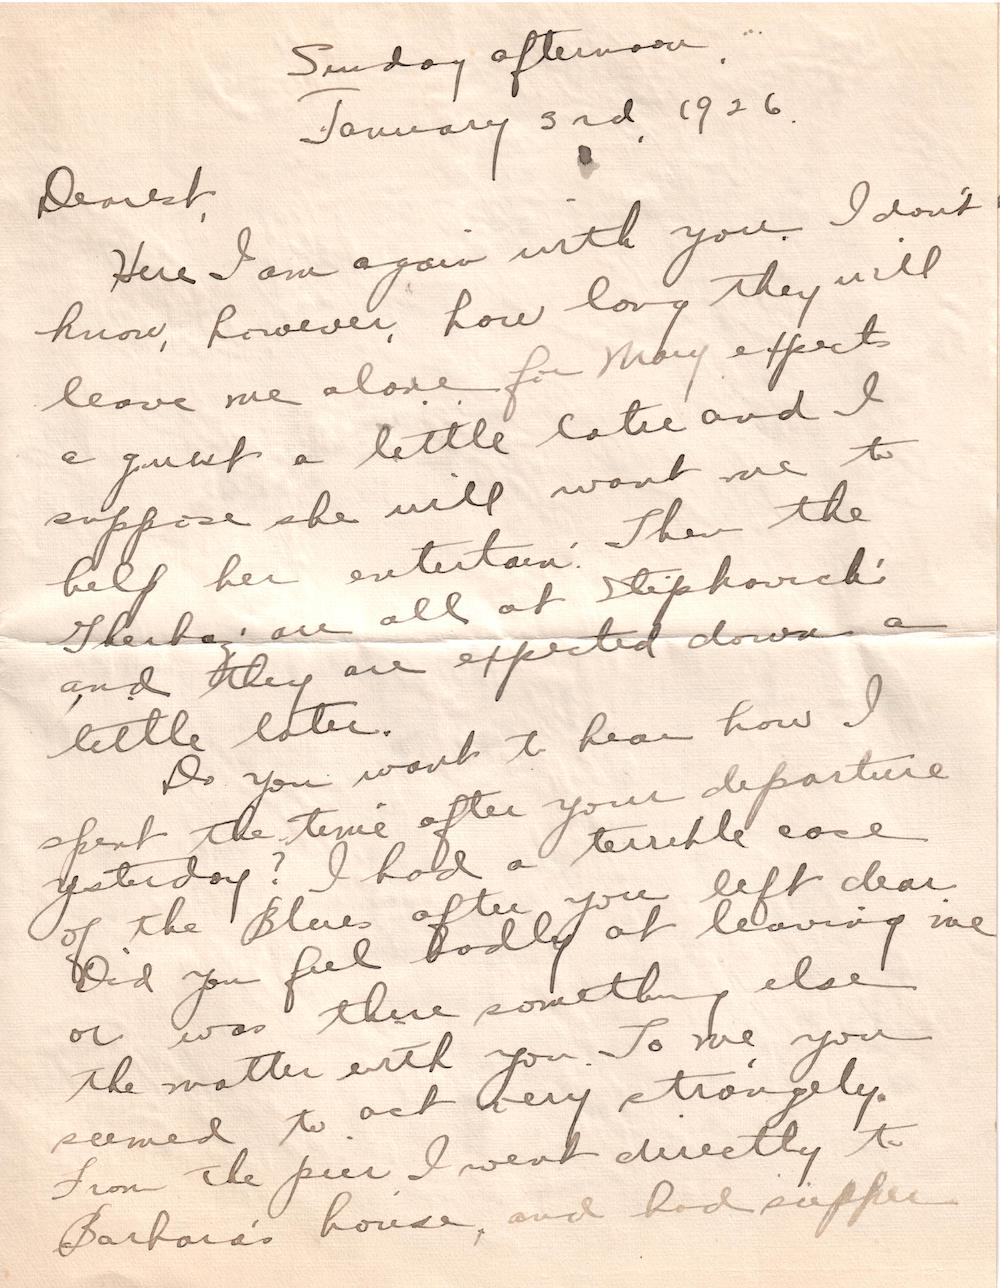 Sunday afternoon,
January 3rd, 1926.
Dearest,
Here I am again with you. I don't
know, however, how long they will
leave me alone for Mary expects
a guest a little later and I
suppose she will want me to
help her entertain. Then the
are all at
and they are expected down a
little later.
Do you want to hear how I
spent the time after your departure
yesterday? I had a terrible case
of the Blues after you left dear
Did you feel badly at leaving me
or was there something else
the matter with you. To me, you
seemed to act very strangely.
From the pier I went directly to
Barbara's house, and had supper